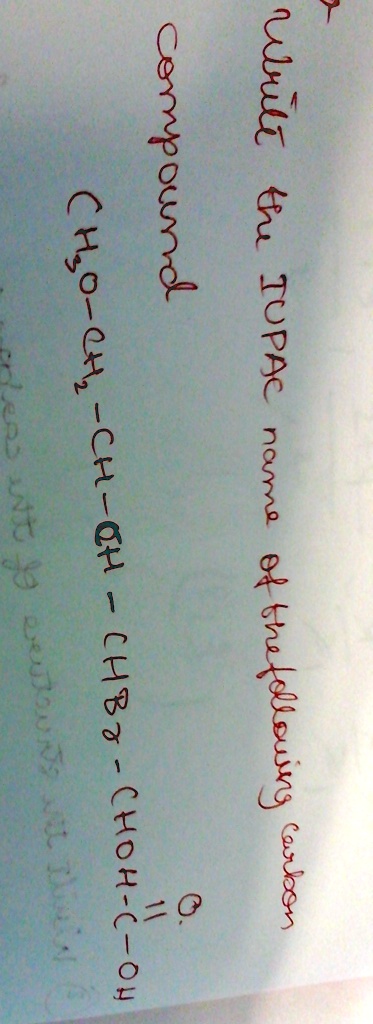 Write the IUPAC name of the following carbon
compound
O.
||
CH₃O-CH₂-CH-CH-CHBr-CHOH-C-OH